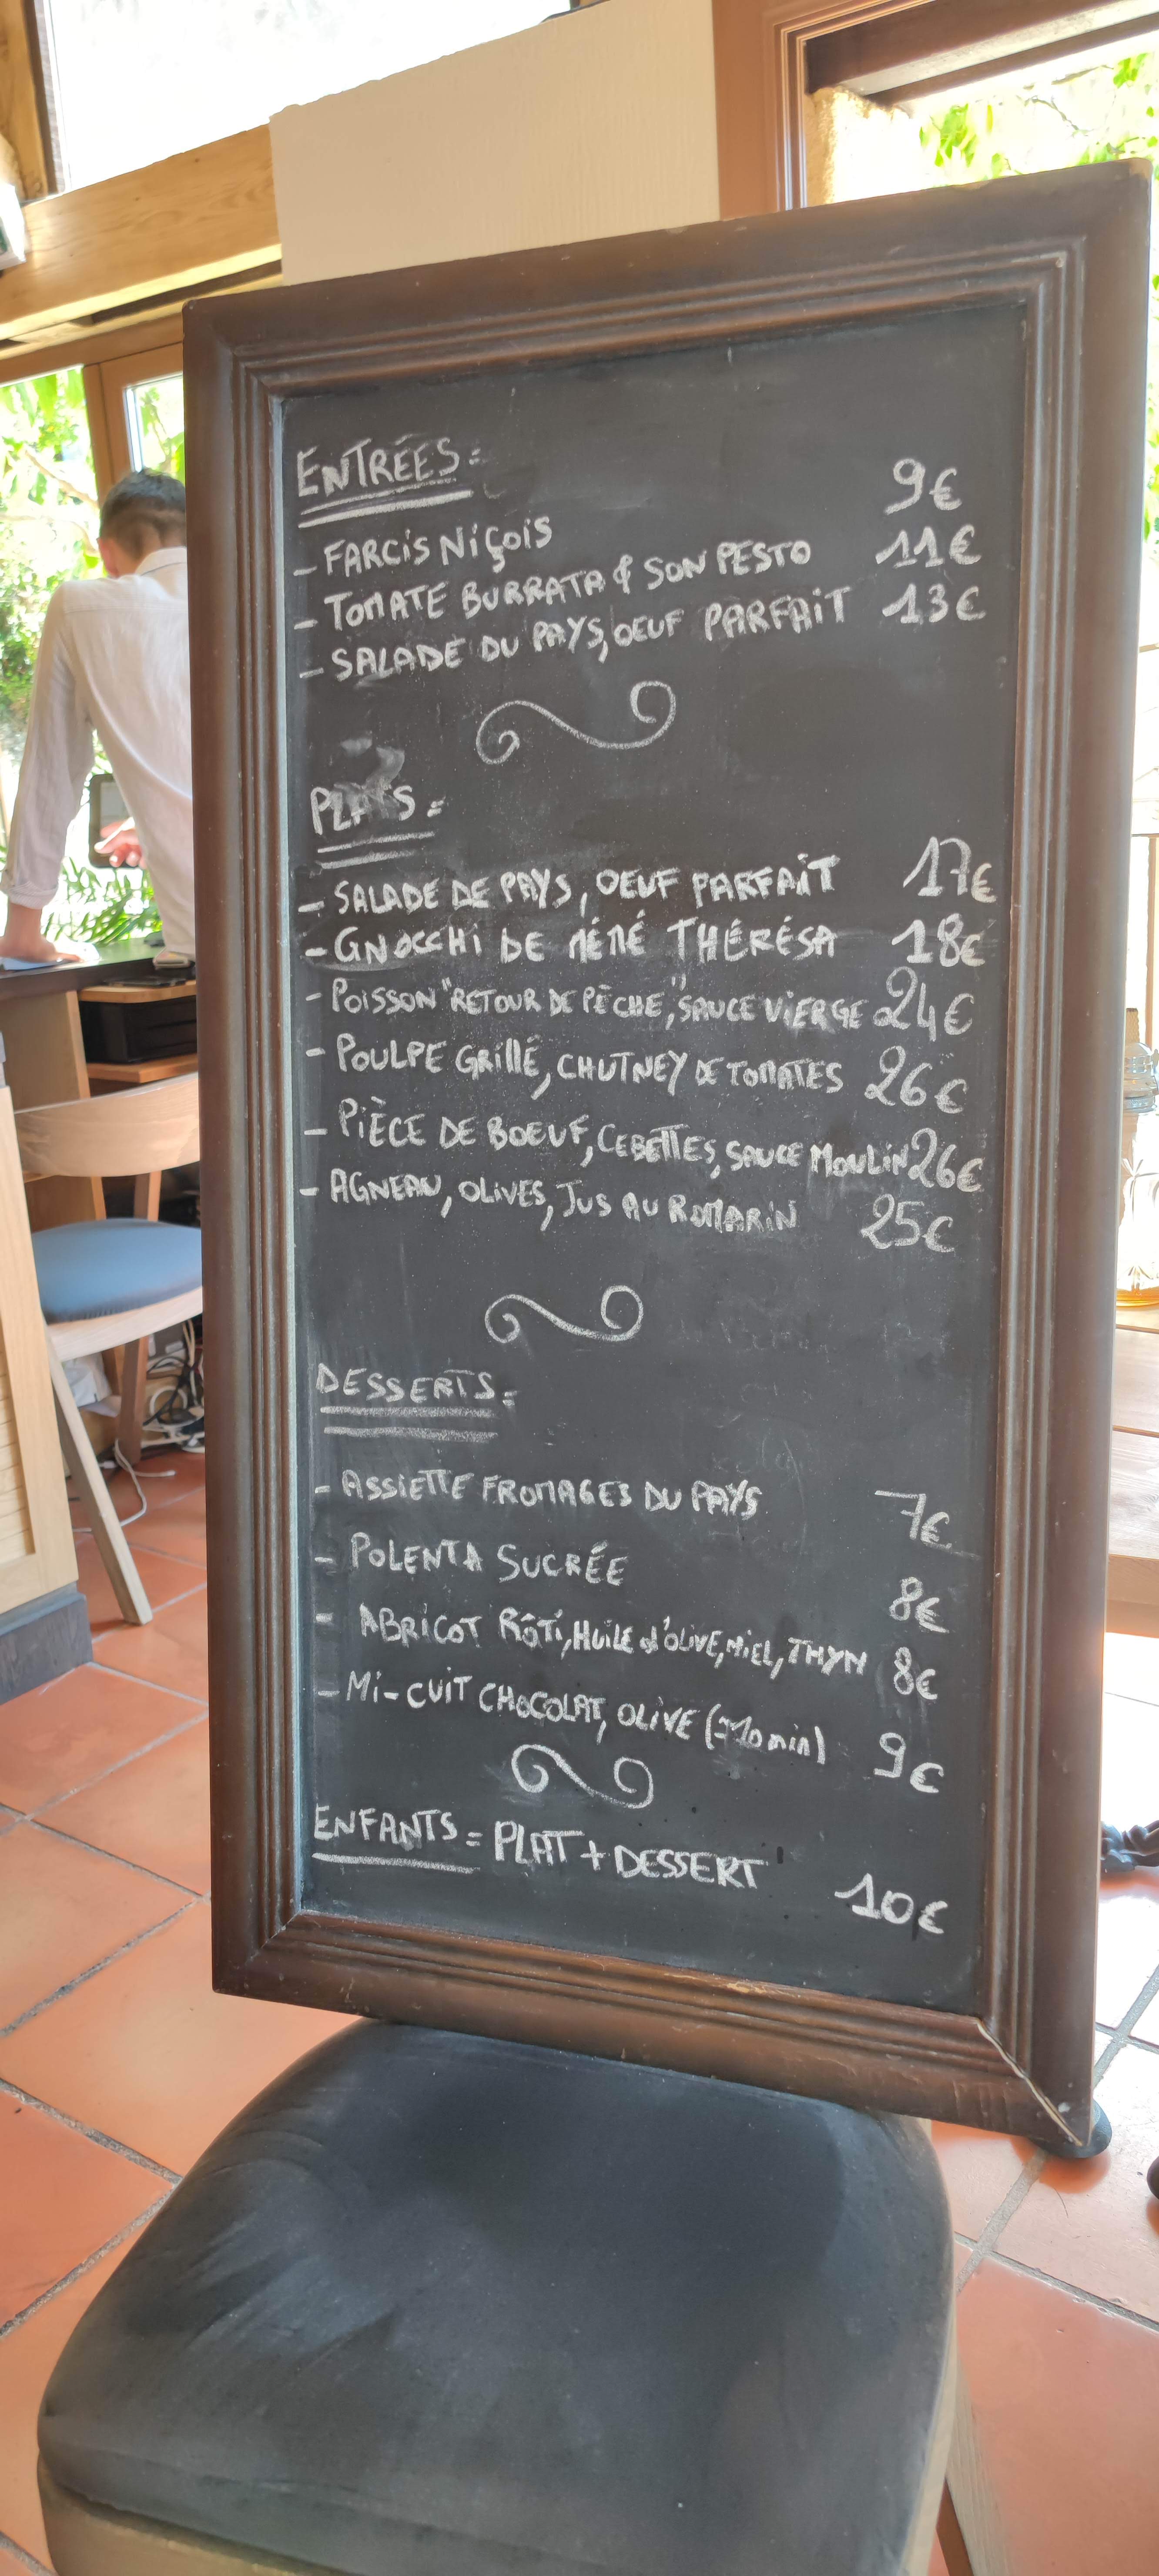 ENTRÉES =
- FARCIS NIÇOIS 9€
- TOMATE BURRATA & SON PESTO 11€
- SALADE DU PAYS, OEUF PARFAIT 13€
PLATS =
- SALADE DE PAYS, OEUF PARFAIT 17€
- GNOCCHI DE MÉMÉ THÉRÉSA 18€
- POISSON "RETOUR DE PÊCHE", SAUCE VIERGE 24€
- POULPE GRILLÉ, CHUTNEY DE TOMATES 26€
- PIÈCE DE BOEUF, CEBETTES, SAUCE MOULIN 26€
- AGNEAU, OLIVES, JUS AU ROMARIN 25€
DESSERTS =
- ASSIETTE FROMAGES DU PAYS 7€
- POLENTA SUCRÉE 8€
- ABRICOT RÔTI, HUILE d'OLIVE, MIEL, THYM 8€
- MI-CUIT CHOCOLAT, OLIVE (10 min) 9€
ENFANTS = PLAT + DESSERT 10€